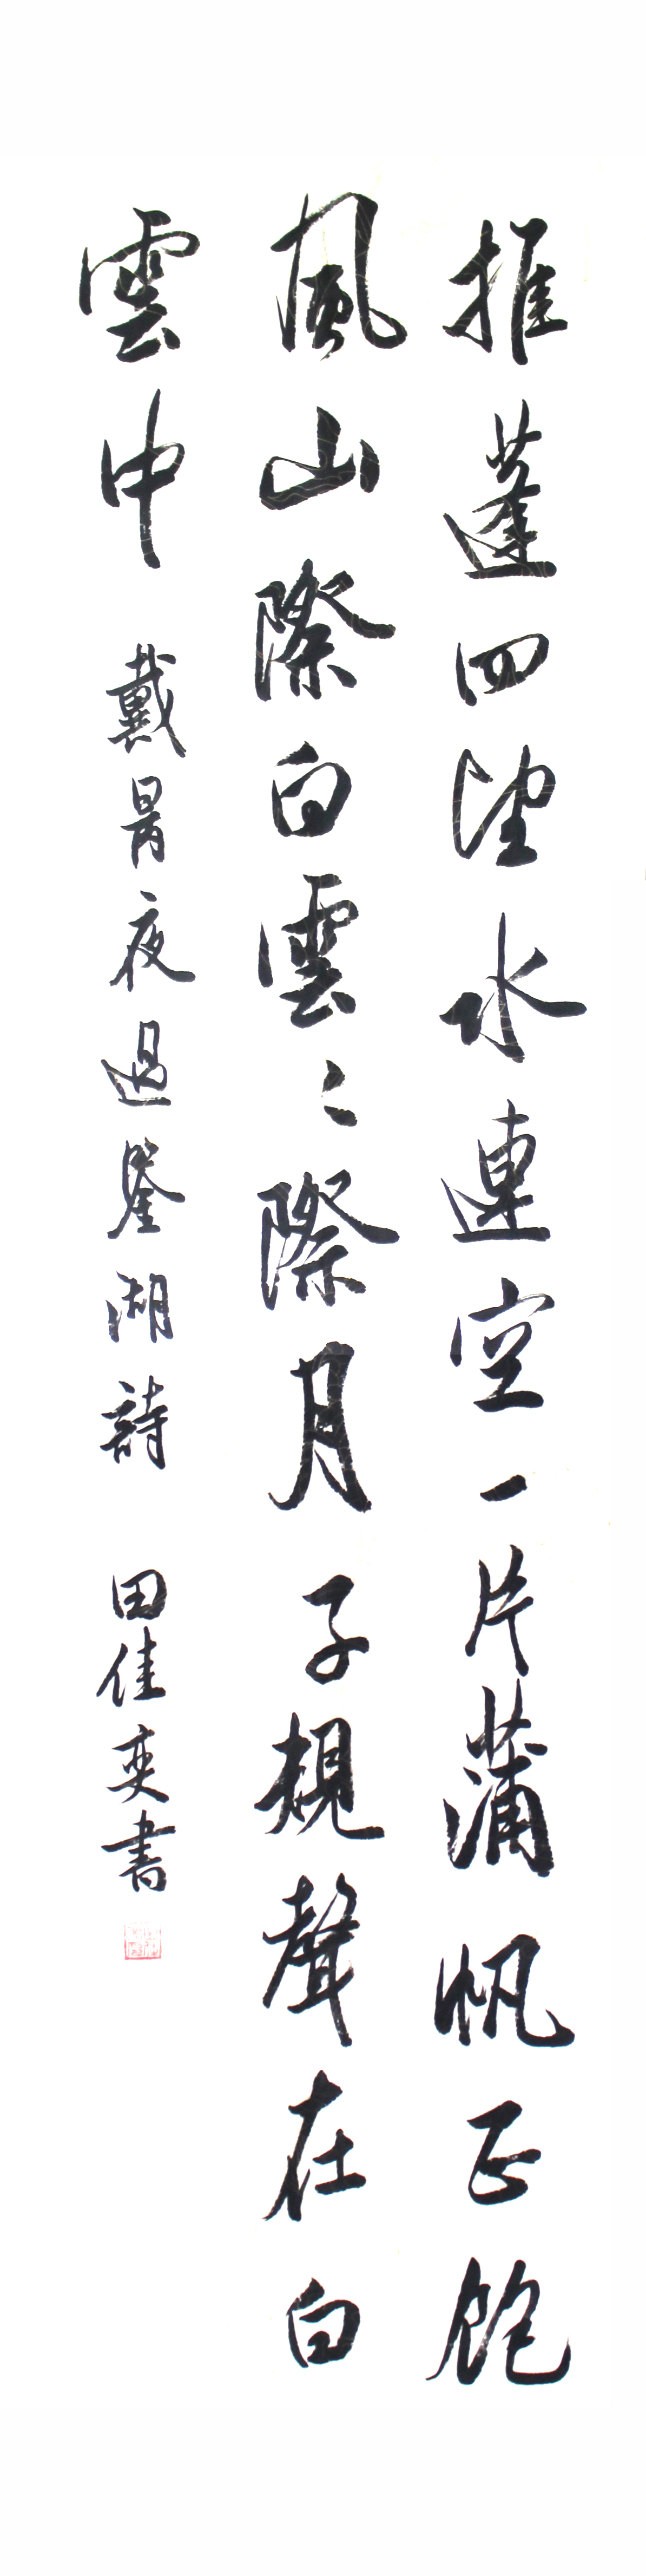 推蓬四望水連空一片蒲帆正飽
風山際白雲〻際月子規聲在白
雲中 戴昺夜過鑒湖詩 田佳奕書